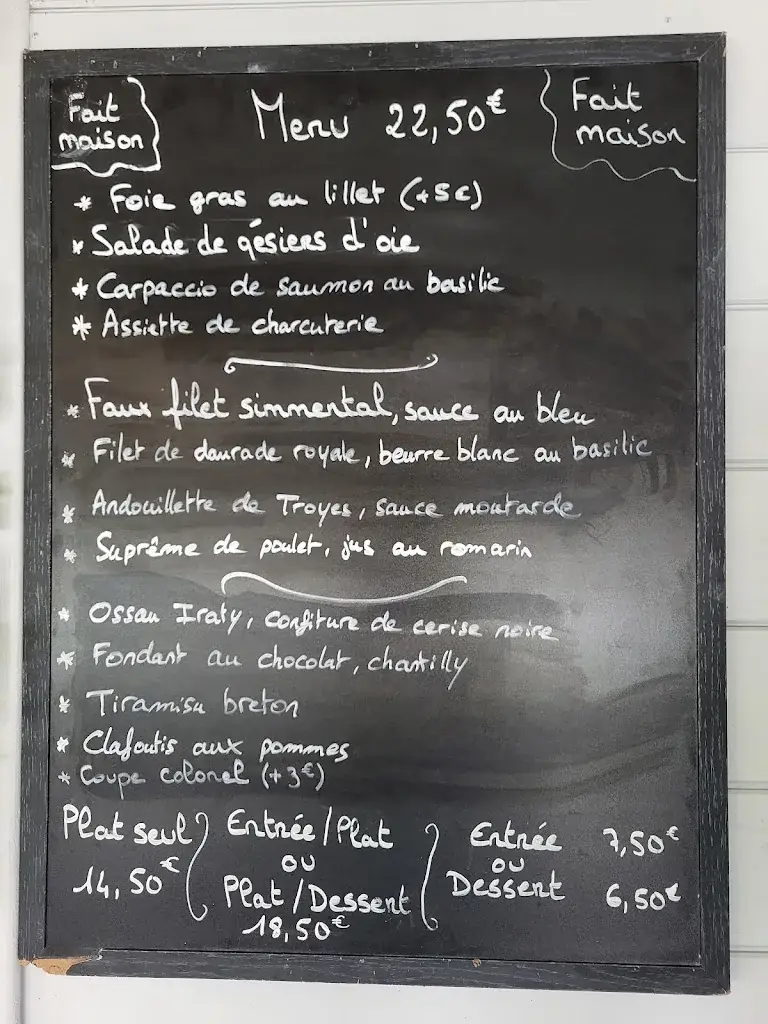 Fait
maison
Menu 22,50€
Fait
maison
* Foie gras au lillet (+5€)
* Salade de gésiers d'oie
* Carpaccio de saumon au basilic
* Assiette de charcuterie
* Faux filet simmental, sauce au bleu
* Filet de daurade royale, beurre blanc au basilic
* Andouillette de Troyes, sauce moutarde
* Suprême de poulet, jus au romarin
* Ossau Iraty, confiture de cerise noire
* Fondant au chocolat, chantilly
* Tiramisu breton
* Clafoutis aux pommes
* Coupe colonel (+3€)
Plat seul
14,50€
Entrée/Plat
ou
Plat/Dessert
18,50€
Entrée 7,50€
ou
Dessert 6,50€